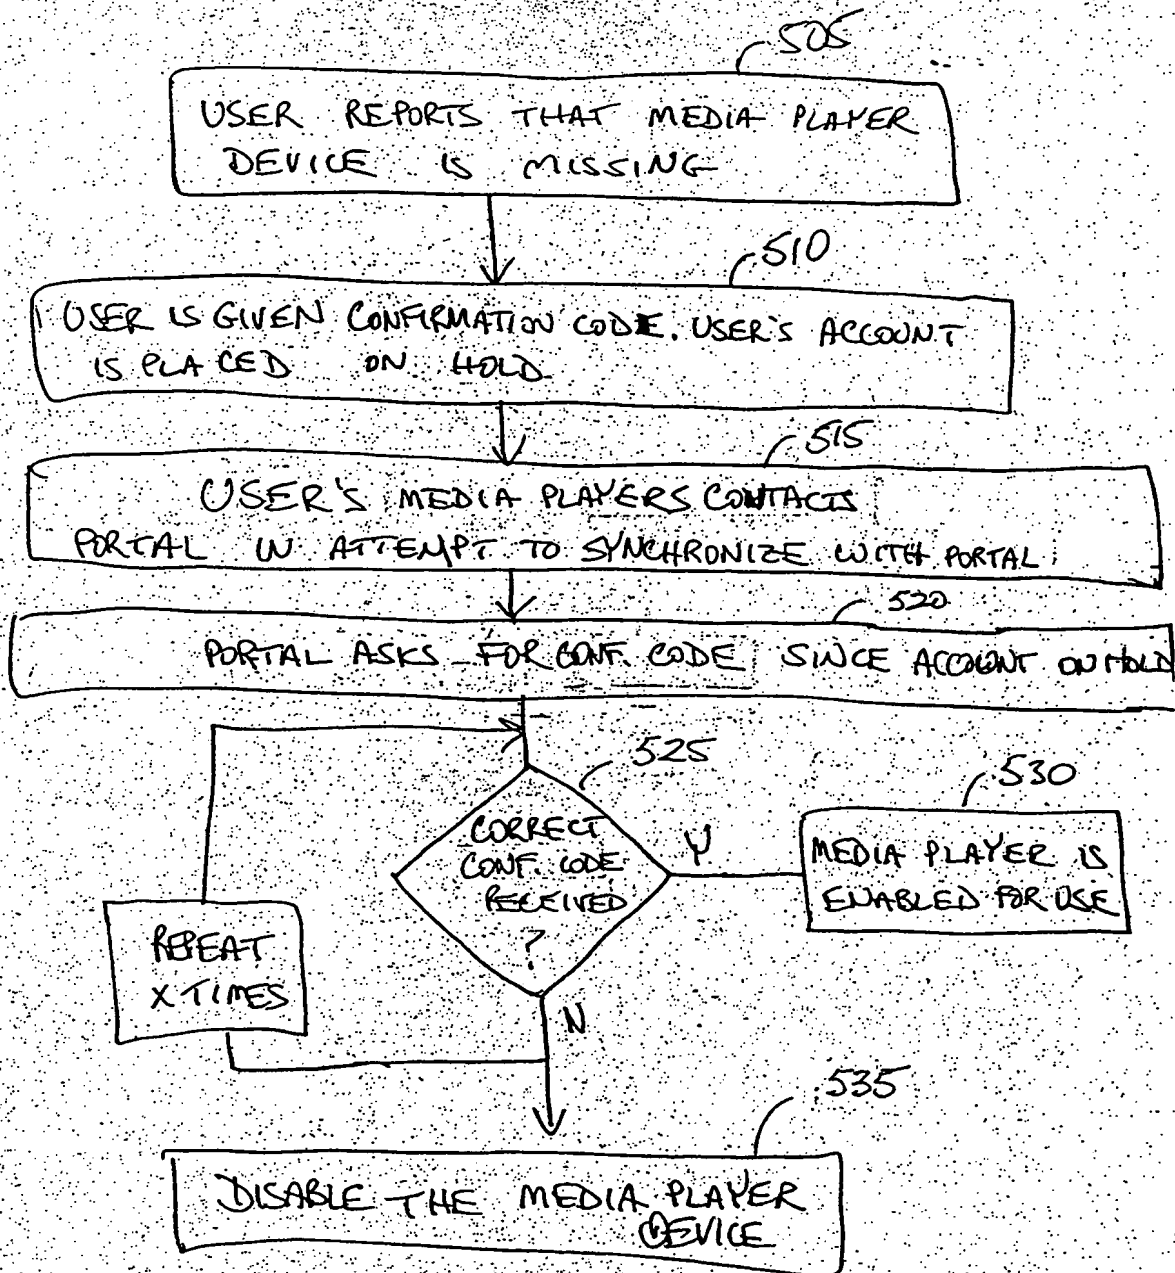 505
USER REPORTS THAT MEDIA PLAYER
DEVICE IS MISSING
510
USER IS GIVEN CONFIRMATION CODE. USER'S ACCOUNT
IS PLACED ON HOLD
515
USER'S MEDIA PLAYERS CONTACTS
PORTAL IN ATTEMPT TO SYNCHRONIZE WITH PORTAL
520
PORTAL ASKS FOR CONF. CODE SINCE ACCOUNT ON HOLD
525
CORRECT
CONF. CODE
RECEIVED
?
Y
530
MEDIA PLAYER IS
ENABLED FOR USE
REPEAT
X TIMES
N
535
DISABLE THE MEDIA PLAYER
DEVICE